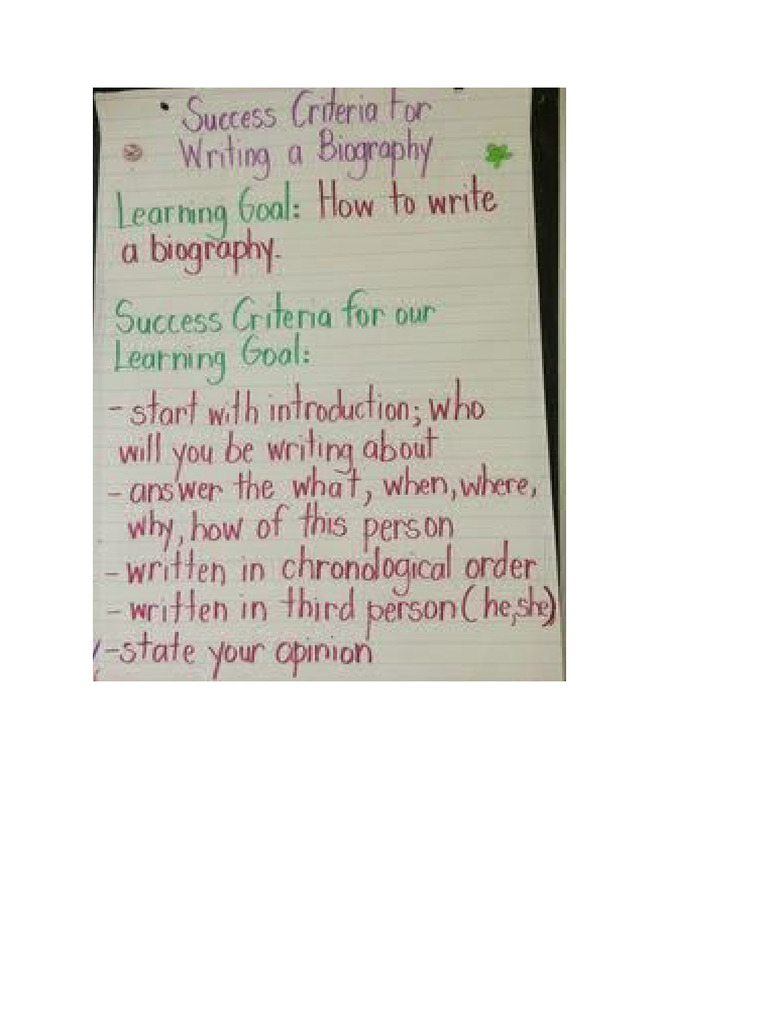 Success Criteria for
Writing a Biography
Learning Goal: How to write
a biography.
Success Criteria for our
Learning Goal:
- start with introduction; who
will you be writing about
- answer the what, when, where,
why, how of this person
- written in chronological order
- written in third person (he, she)
- state your opinion